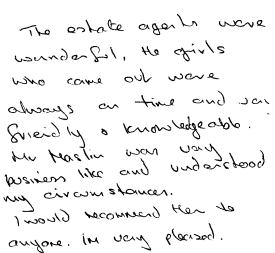 The estate agents were
wunderful, the girls
who came out were
always on time and very
friendly & knowledgeable.
Mr Maslin was very
business like and understood
my circumstances.
I would recommend them to
anyone. im very pleased.